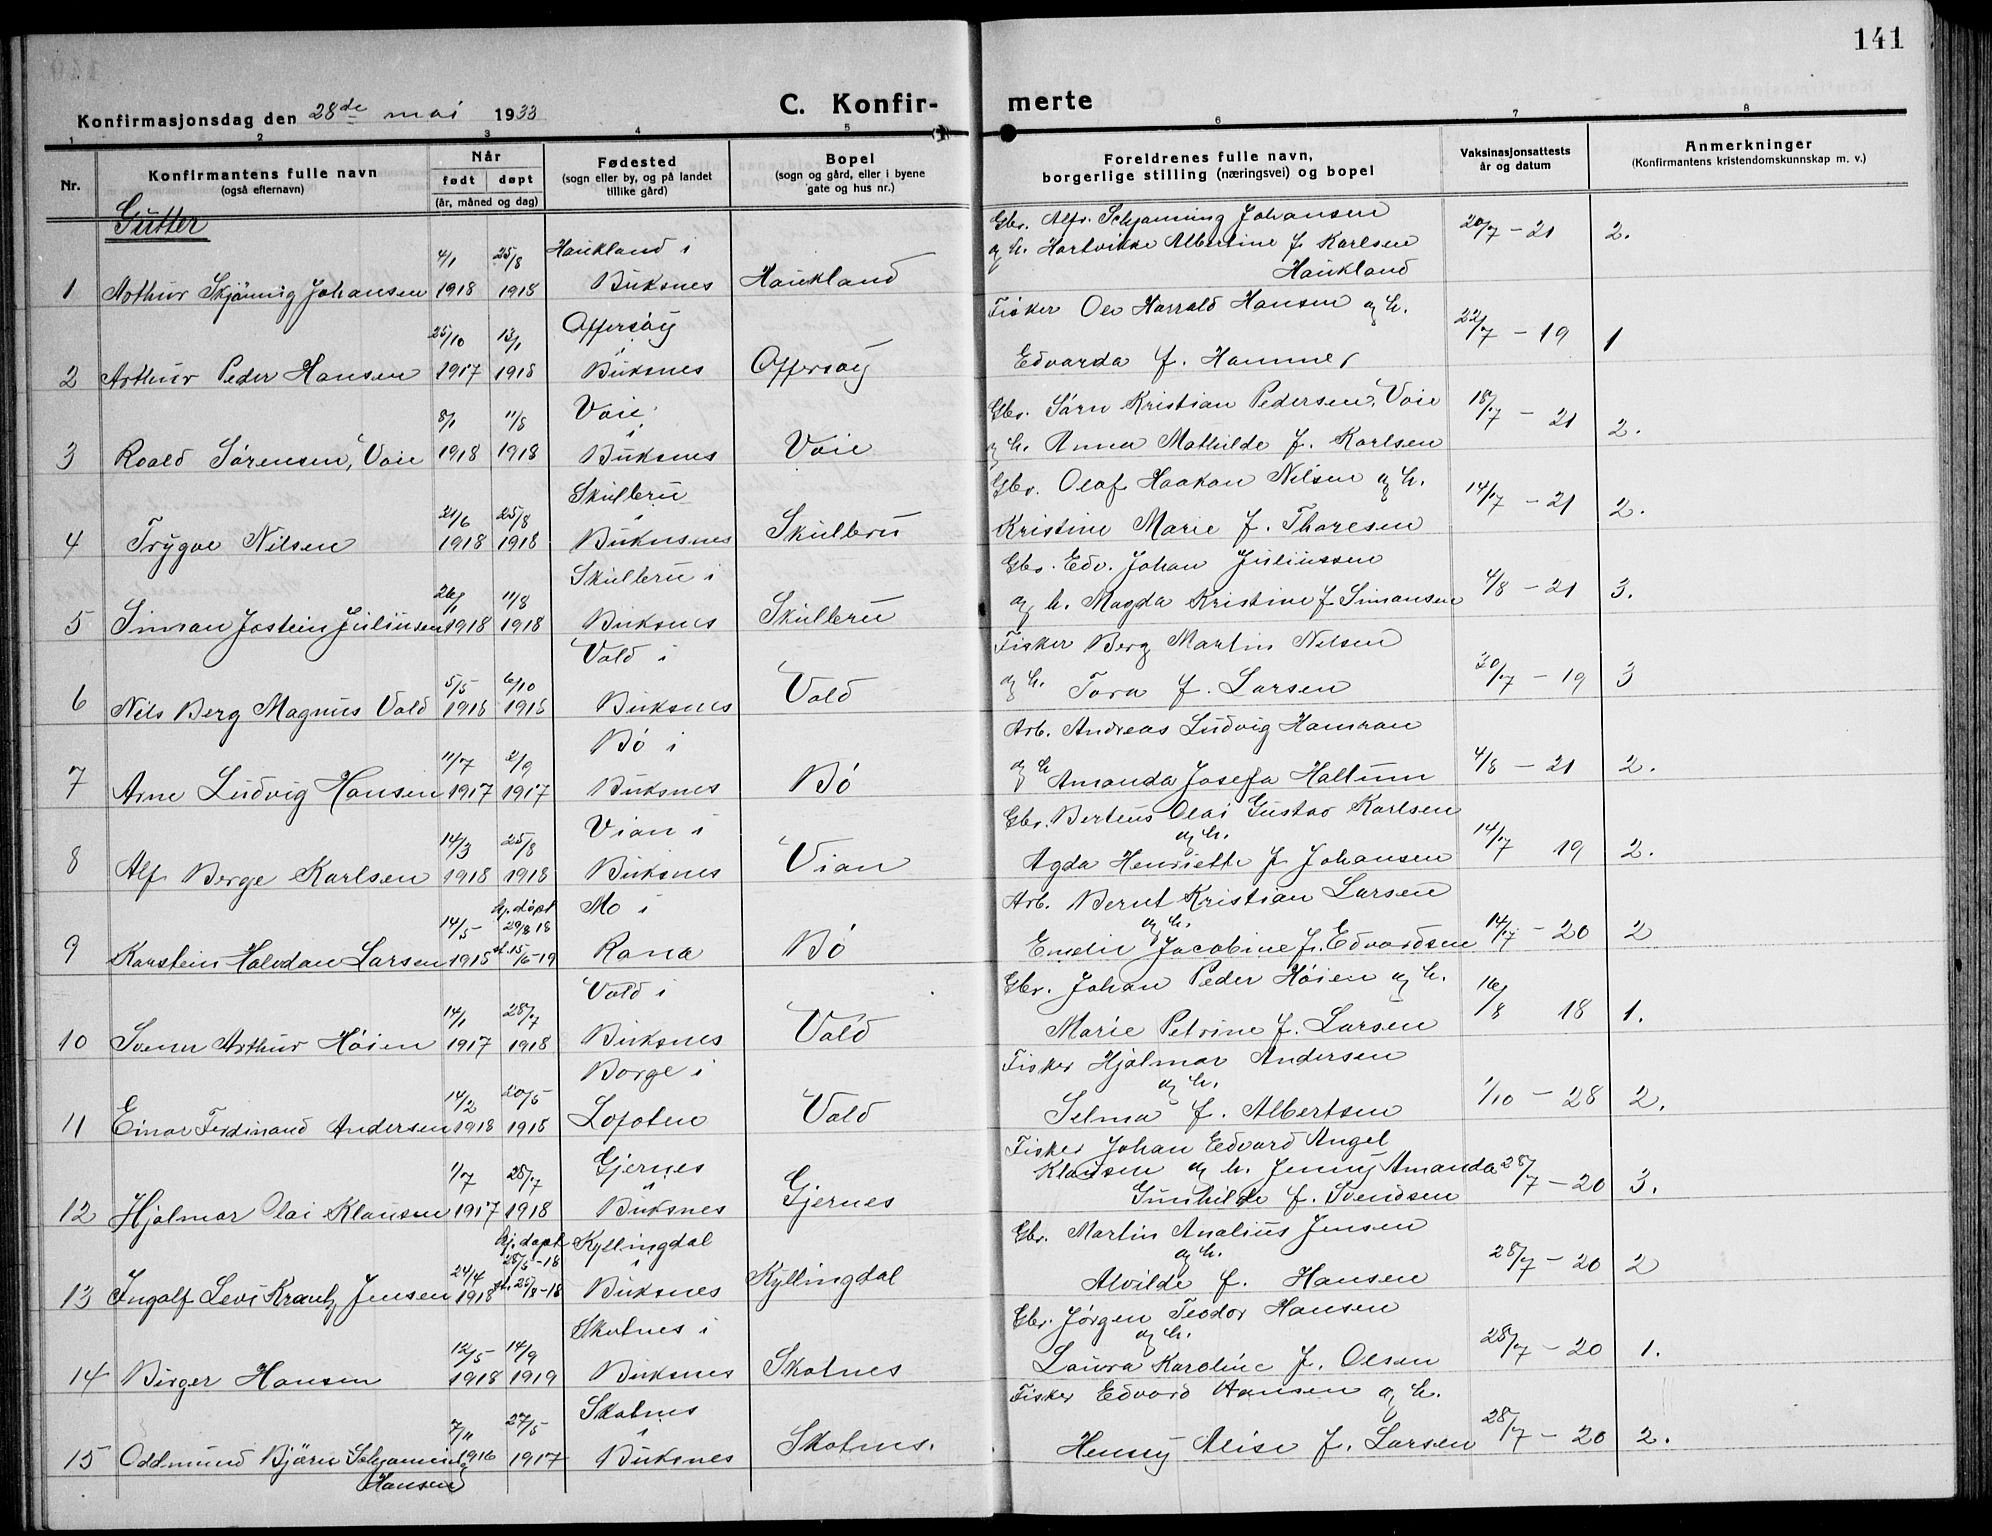 141
Konfirmasjonsdag den 28de mai 1933
C. Konfir-
merte
1 2 3 4 5
6 7 8
Nr.
Konfirmantens fulle navn
(også efternavn)
Når
født døpt
(år, måned og dag)
Fødested
(sogn eller by, og på landet
tillike gård)
Bopel
(sogn og gård, eller i byene
gate og hus nr.)
Foreldrenes fulle navn,
borgerlige stilling (næringsvei) og bopel
Vaksinasjonsattests
år og datum
Anmerkninger
(Konfirmantens kristendomskunnskap m. v.)
Gutter
4/1 25/8 Haukland i
1 Arthur Skjånnig Johansen 1918 1918 Buksnes Haukland
Gbr. Alfr. Schjanning Johansen
og h. Hartvikke Albertine f. Karlsen
Haukland
20/7 - 21 2.
25/10 13/1 Offersøy
2 Arthur Peder Hansen 1917 1918 i Buksnes Offersøy
Fisker Ole Harrald Hansen og h.
Edvarda f. Hammer
22/7 - 19 1
8/1 11/8 Voie
3 Roald Sørensen, Voie 1918 1918 i Buksnes Voie
Gbr. Sørn Kristian Pedersen, Voie
og h. Anna Mathilde f. Karlsen
18/7 - 21 2.
21/6 25/8 Skulbru
4 Trygve Nilsen 1918 1918 i Buksnes Skulbru
Gbr. Olaf Haakon Nilsen og h.
Kristine Marie f. Thoresen
14/7 - 21 2.
26/1 11/8 Skulbru i
5 Simon Jostein Juliussen 1918 1918 Buksnes Skulbru
Gbr. Edv. Johan Juliussen
og h. Magda Kristine f. Simonsen
4/8 - 21 3.
5/5 6/10 Vold i
6 Nils Berg Magnus Vold 1918 1918 Buksnes Vold
Fisker Berg Martin Nilsen
og h. Tora f. Larsen
30/7 - 19 3
11/7 2/9 Bø i
7 Arne Ludvig Hansen 1917 1917 Buksnes Bø
Arb. Andreas Ludvig Hamran
og h. Amanda Josefa Haltum
4/8 - 21 2.
14/3 25/8 Vian i
8 Alf Berge Karlsen 1918 1918 Buksnes Vian
Gbr. Berteus Olai Gustav Karlsen
og h.
Agda Henriette f. Johansen
14/7 19 2.
14/5 hj. døpt 29/8 18 Mo i
9 Karstein Halvdan Larsen 1918 st. 15/6-19 Rana Bø
Arb. Bernt Kristian Larsen
og h.
Emelie Jacobine f. Edvardsen
14/7 - 20 2
14/1 28/7 Vold i
10 Svenn Arthur Høien 1917 1918 Buksnes Vold
Gbr. Johan Peder Høien og h.
Marie Petrine f. Larsen
16/8 18 1.
14/2 20/5 Borge i
11 Einar Ferdinand Andersen 1918 1918 Lofoten Vold
Fisker Hjalmar Andersen
og h.
Selma f. Albertsen
1/10 - 28 2.
1/7 28/7 Gjernes
12 Hjalmar Olai Klausen 1917 1918 i Buksnes Gjernes
Fisker Johan Edvard Angel
Klausen og h. Jenny Amanda
Gunhilde f. Svendsen
28/7 - 20 3.
24/4 hj. døpt 28/5-18 Kyllingdal
13 Ingolf Levi Krantz Jensen 1918 st. 25/8-18 i Buksnes Kyllingdal
Gbr. Martin Analius Jensen
og h.
Alvilde f. Hansen
28/7 - 20 2
12/5 14/9 Skotnes i
14 Birger Hansen 1918 1919 Buksnes Skotnes
Gbr. Jørgen Teodor Hansen
og h.
Laura Karoline f. Olsen
28/7 - 20 1.
7/11 27/5 Skotnes
15 Oddmund Bjørn Schjanning 1916 1917 i Buksnes Skotnes.
Hansen
Fisker Edvard Hansen og h.
Henny Alise f. Larsen
28/7 - 20 2.